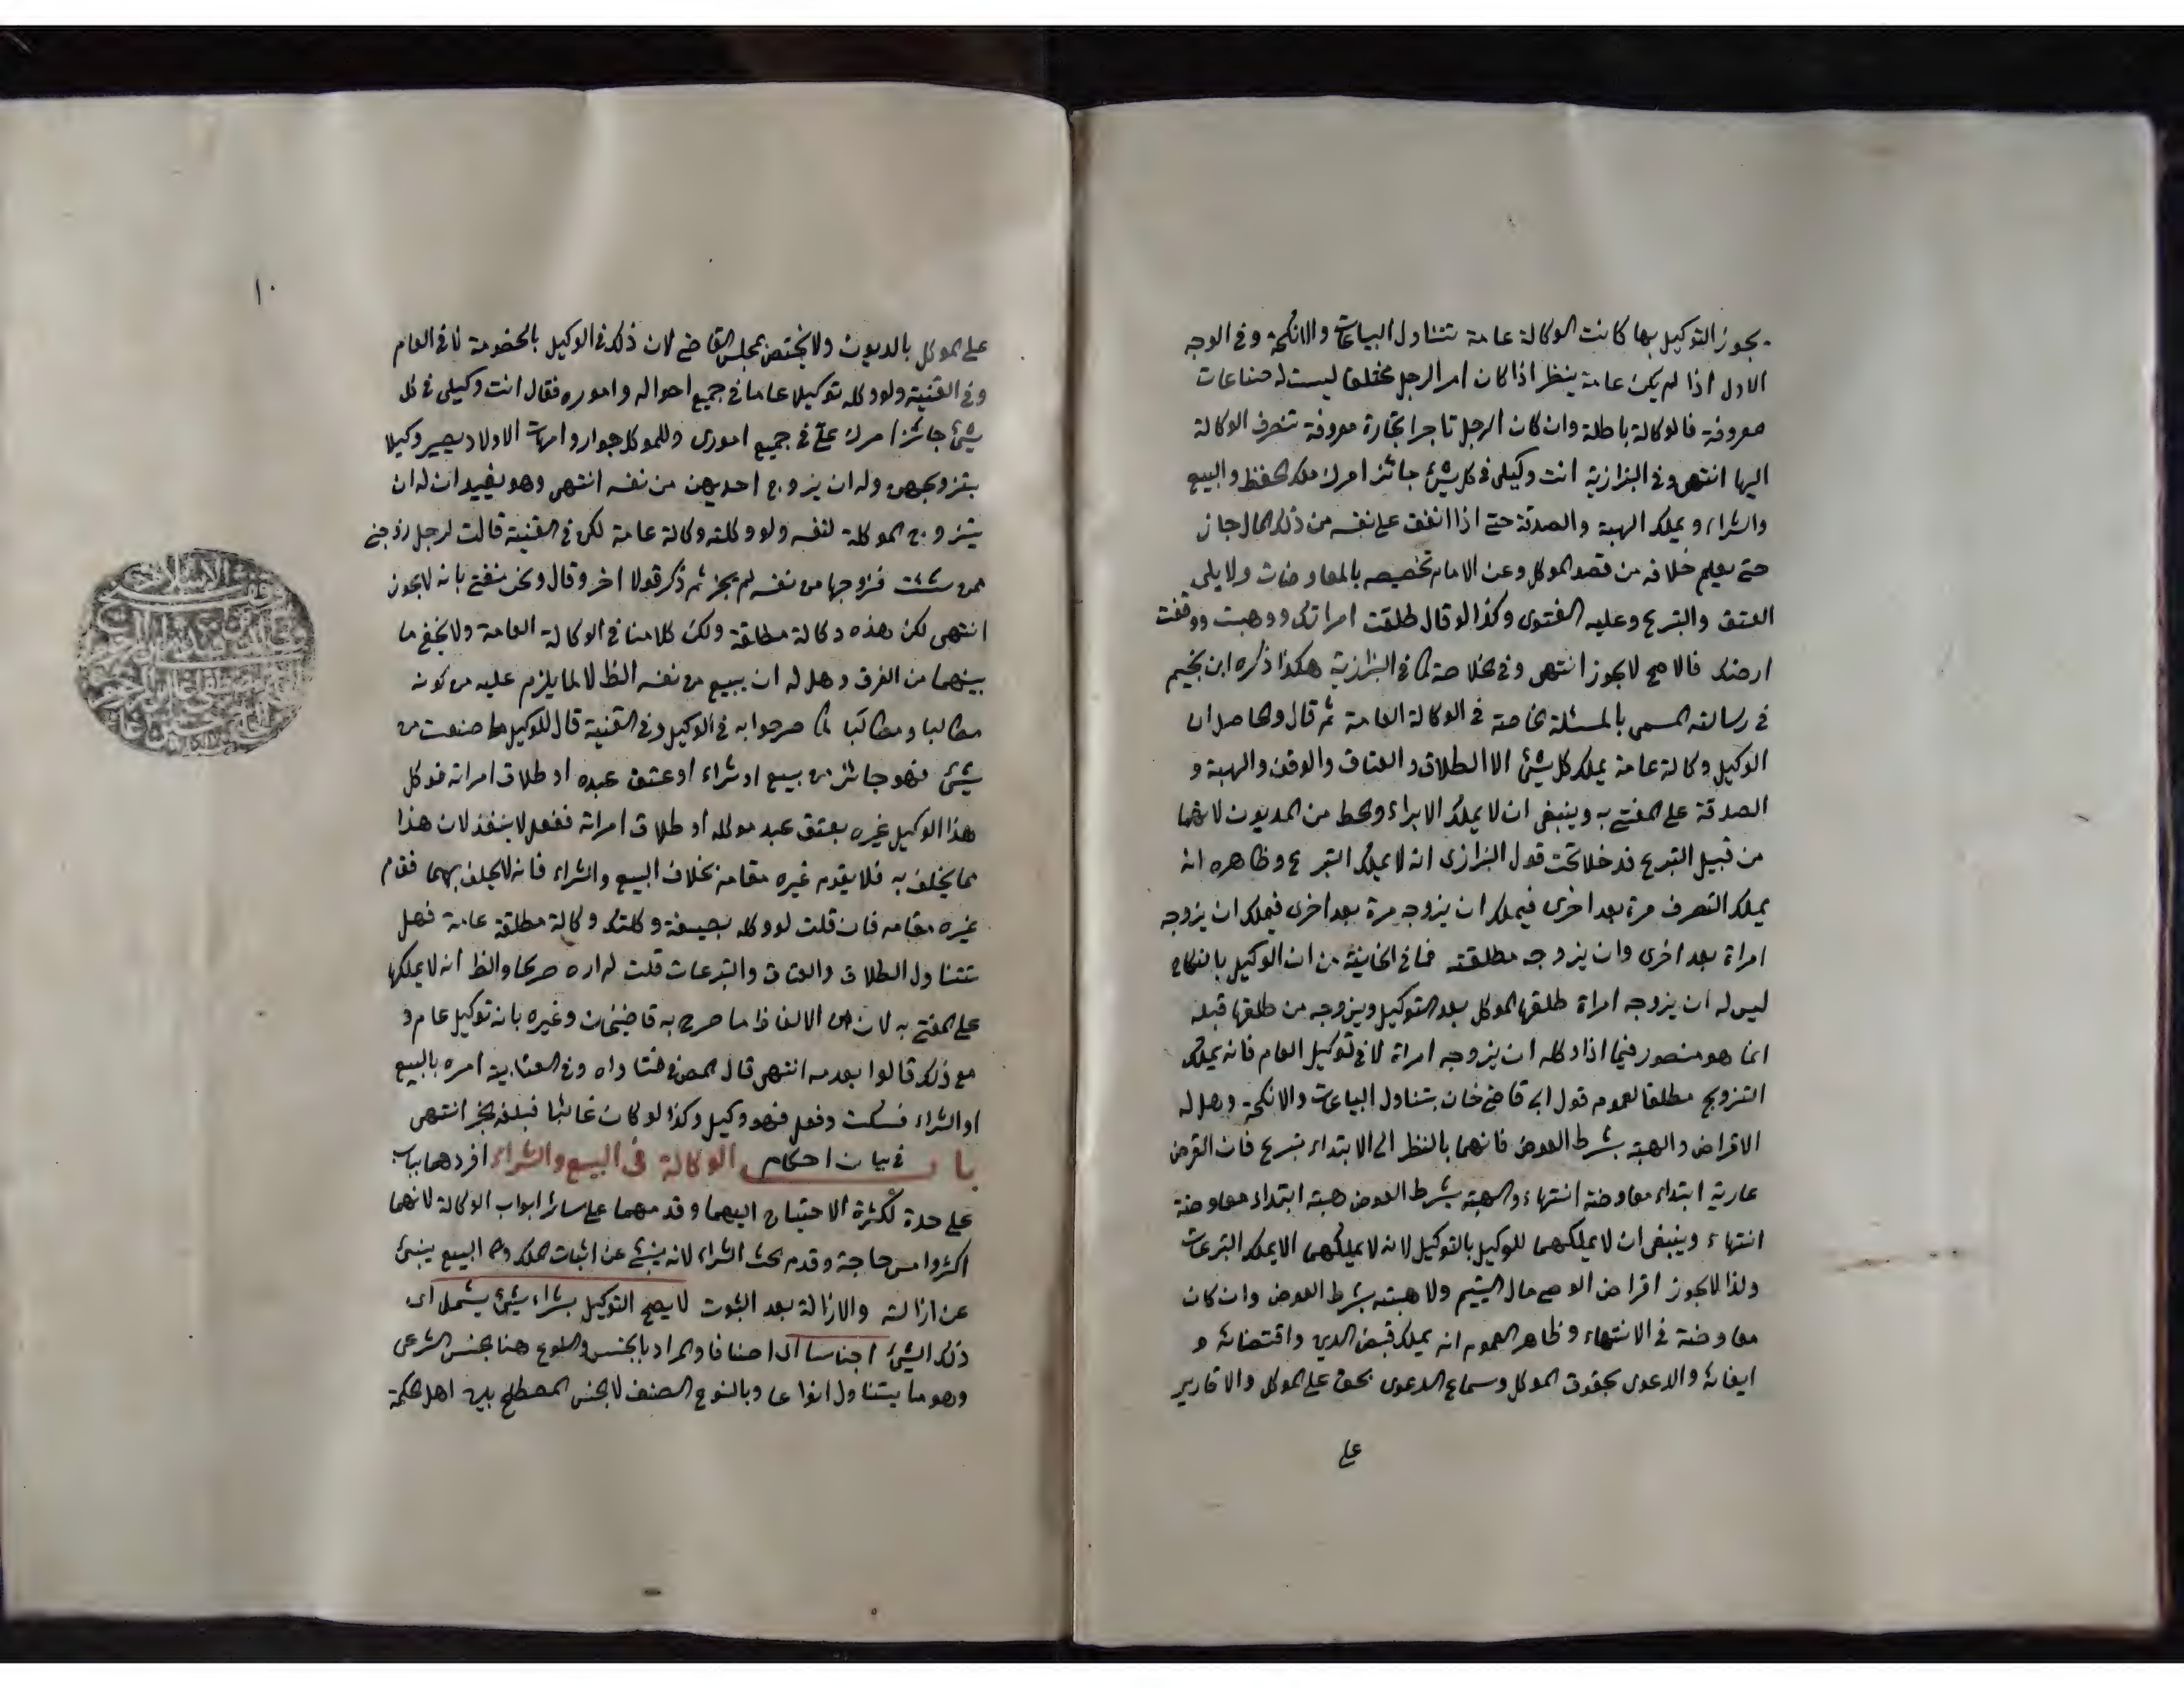 يجوز التوكيل بها كانت الوكالة عامة تتناول البياعات والانكحة وفى الوجه
الاول اذا لم يكن عامة ينظر اذا كان امر الرجل مختلفا ليست له صناعات
معروفة فالوكالة باطلة وان كان الرجل تاجرا تجارة معروفة تنصرف الوكالة
اليها انتهى وفى البزازية انت وكيلى فى كل شئ جائز امرك ملك الحفظ والبيع
والشراء ويملك الهبة والصدقة حتى اذا انفق على نفسه من ذلك المال جاز
حتى يعلم خلافه من قصد الموكل وعن الامام تخصيصه بالمعاوضات ولا يلى
العتق والتبرع وعليه الفتوى وكذا لو قال طلقت امراتك ووهبت ووقفت
ارضك فالاصح لا يجوز انتهى وفى الخلاصة كما فى البزازية هكذا ذكره ابن نجيم
فى رسالته المسمى بالمسئلة الخاصة فى الوكالة العامة ثم قال والحاصل ان
الوكيل وكالة عامة يملك كل شئ الا الطلاق والعتاق والوقف والهبة و
الصدقة على المفتى به وينبغى ان لا يملك الابراء والحط من المديون لانهما
من قبيل التبرع فدخلا تحت قول البزازى انه لا يملك التبرع وظاهره انه
يملك التصرف مرة بعد اخرى فيملك ان يزوجه مرة بعد اخرى فيملك ان يزوجه
امراة بعد اخرى وان يزوجه مطلقته فما فى الخانية من ان الوكيل بالنكاح
ليس له ان يزوجه امراة طلقها الموكل بعد التوكيل ويزوجه من طلقها قبله
انما هو متصور فيما اذا وكله ان يزوجه امراة لا فى توكيل العام فانه يملك
التزويج مطلقا لعموم قول اى قاضى خان يتناول البياعات والانكحة وهل له
الاقراض والهبة بشرط العوض فانهما بالنظر الى الابتداء تبرع فان القرض
عارية ابتداء معاوضة انتهاء والهبة بشرط العوض هبة ابتداء معاوضة
انتهاء وينبغى ان لا يملكهما للوكيل بالتوكيل لانه لا يملكهما الا يملك التبرعات
ولذا لا يجوز اقراض الوصى مال اليتيم ولا هبته بشرط العوض وان كان
معاوضة فى الانتهاء وظاهر العموم انه يملك قبض الدين واقتضائه و
ايفائه والدعوى بحقوق الموكل وسماع الدعوى بحق على الموكل والاقارير
على
١٠
على الموكل بالديون ولا يختص بمجلس القاضى لان ذلك فى الوكيل بالخصومة لا فى العام
وفى القنية ولو وكله توكيلا عاما فى جميع احواله واموره فقال انت وكيلى فى كل
شئ جائز امرك على فى جميع امورى وللموكل جوار وامهات الاولاد يصير وكيلا
بتزويجهن وله ان يزوج احديهن من نفسه انتهى وهو يفيد ان له ان
يتزوج الموكلة لنفسه ولو وكلته وكالة عامة لكن فى القنية قالت لرجل زوجنى
ممن شئت فزوجها من نفسه لم يجز ثم ذكر قولا اخر وقال ونحن نفتى بانه لا يجوز
انتهى لكن هذه وكالة مطلقة ولكن كلامنا فى الوكالة العامة ولا يخفى ما
بينهما من الفرق وهل له ان يبيع من نفسه الظ لا لما يلزم عليه من كونه
مطالبا ومطالبا كما صرحوا به فى الوكيل وفى القنية قال للوكيل ما صنعت من
شئ فهو جائز من بيع او شراء او عتق عبده او طلاق امراته فوكل
هذا الوكيل غيره بعتق عبد موكله او طلاق امراته ففعل لا ينفذ لان هذا
مما يحلف به فلا يقوم غيره مقامه بخلاف البيع والشراء فانه لا يحلف بهما فقام
غيره مقامه فان قلت لو وكله بصيغة وكلتك وكالة مطلقة عامة فهل
تتناول الطلاق والعتاق والتبرعات قلت لم اره صريحا والظ انه لا يملكها
على المفتى به لان من الالفاظ ما صرح به قاضيخان وغيره بانه توكيل عام و
مع ذلك قالوا بعدمه انتهى قال المص فى فتاواه وفى العتابية امره بالبيع
او الشراء فسكت وفعل فهو وكيل وكذا لو كان غائبا فبلغه الخبر انتهى
باب فى بيان احكام الوكالة فى البيع والشراء افردهما بباب
على حدة لكثرة الاحتياج اليهما وقدمهما على سائر ابواب الوكالة لانهما
اكثر وامس حاجة وقدم بحث الشراء لانه ينبئ عن اثبات الملك والبيع ينبئ
عن ازالته والازالة بعد الثبوت لا يصح التوكيل بشراء شئ يشمل اى
ذلك الشئ اجناسا اى اصنافا والمراد بالجنس والنوع هنا الجنس الشرعى
وهو ما يتناول انواعا وبالنوع الصنف لا الجنس المصطلح بين اهل الحكمة